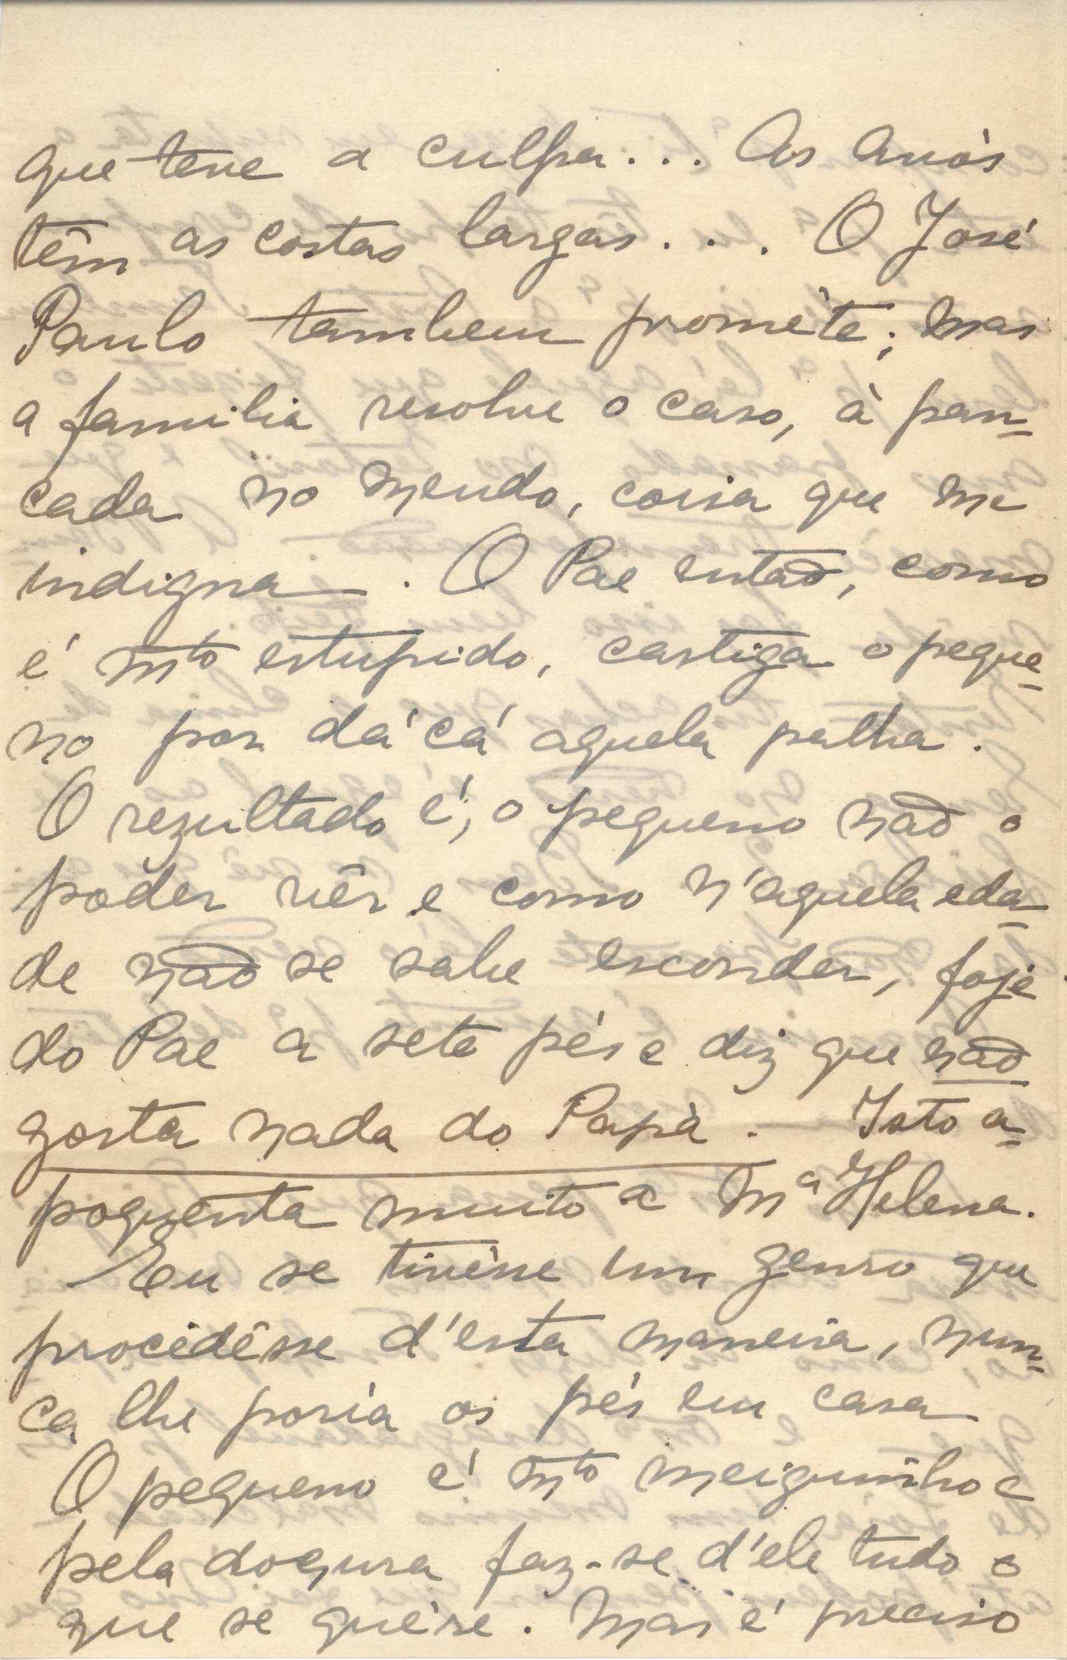 que teve a culpa... As Avós
têm as costas largas... O José
Paulo tambem promète; mas
a familia resolve o caso, à pan-
cada no meudo, coisa que me
indigna. O Pae então, como
é mto estupido, castiga o peque-
no por dá cá aquela palha.
O rezultado é, o pequeno não o
poder vêr e como n'aquela eda-
de não se sabe esconder, foje
do Pae a sete pés e diz que não
gosta nada do Papà. Isto a-
poquenta muito a Mª Helena.
Eu se tivésse um genro que
procedêsse d'esta maneira, nun-
ca lhe poria os pés em casa
O pequeno é mto meiguinho e
pela doçura faz-se d'ele tudo o
que se quére. Mas é preciso